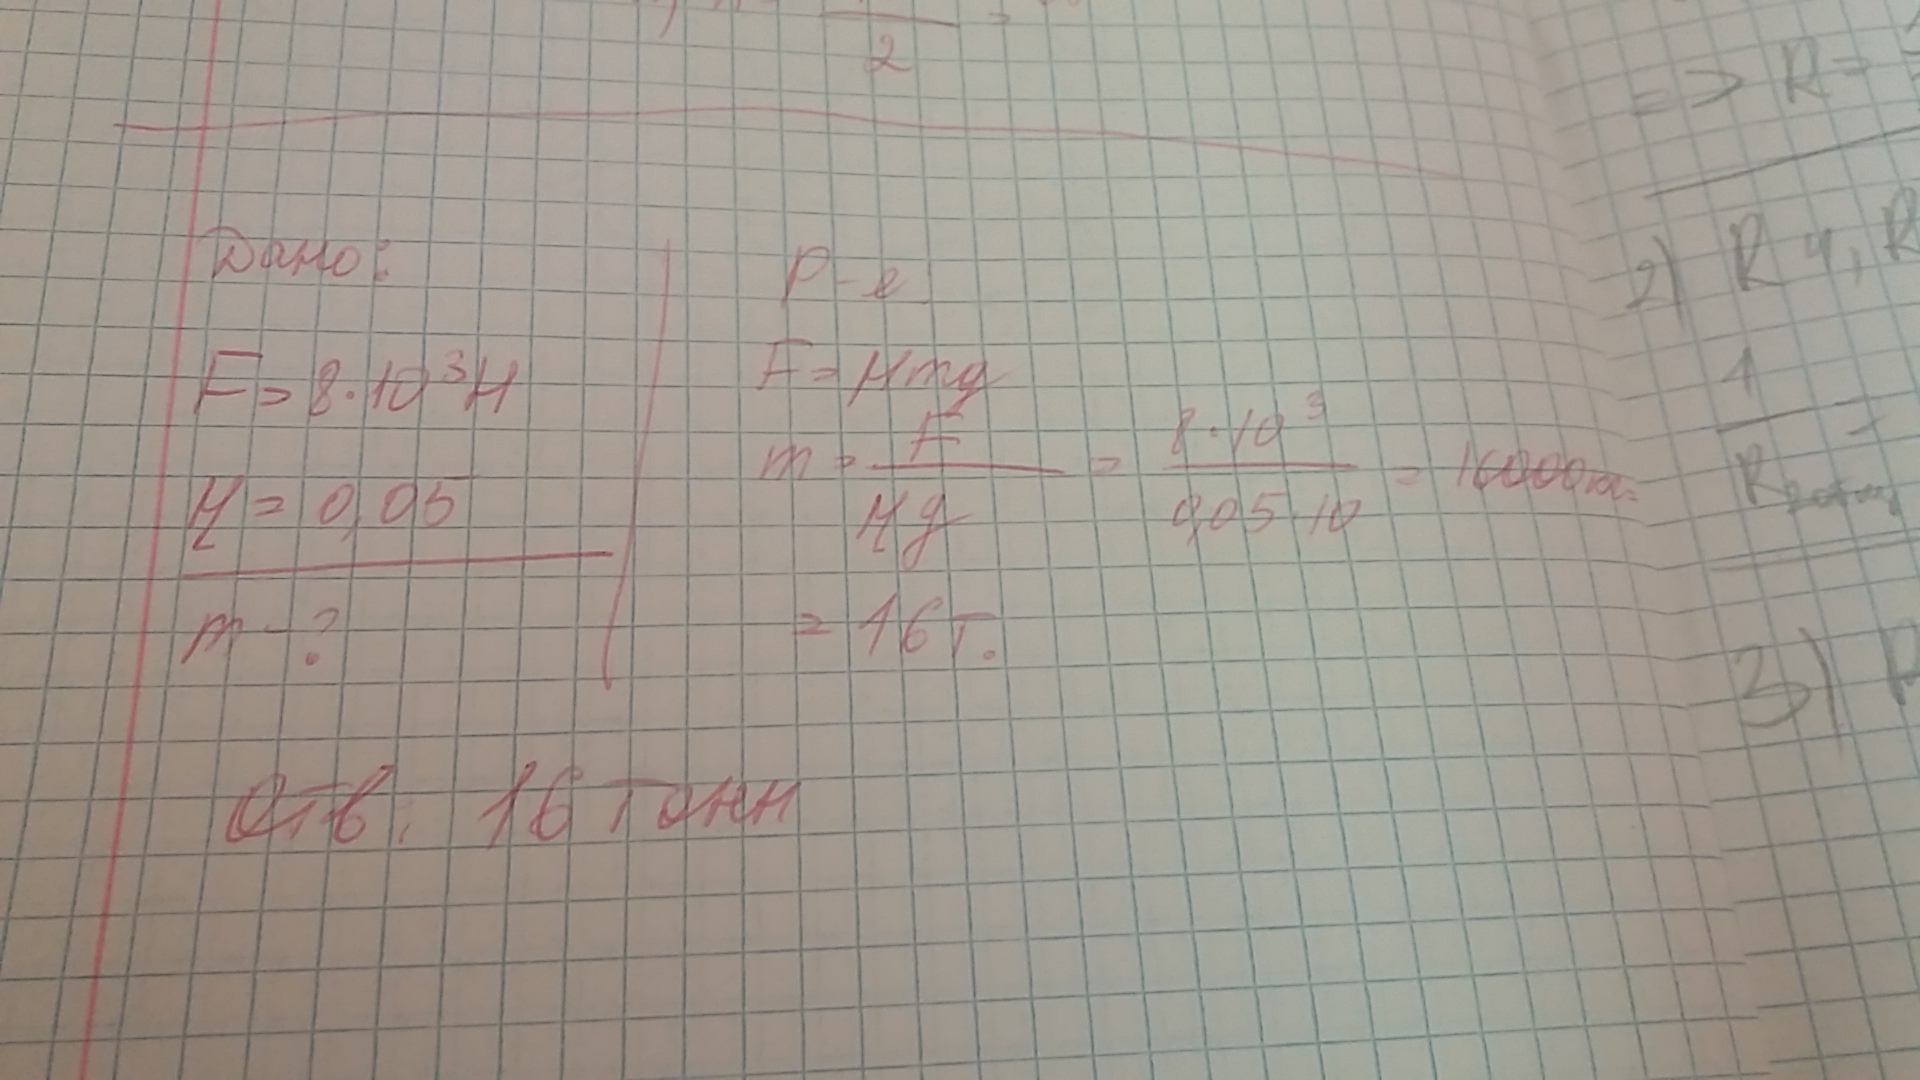 2
Дано:
F = 8·10³Н
μ = 0,05
m - ?
Р-е
F = μmg
m = F/μg = 8·10³/0,05·10 = 16000кг =
= 16 т.
Отв: 16 тонн
=> R =
2) R 4, R
1
R
3) R